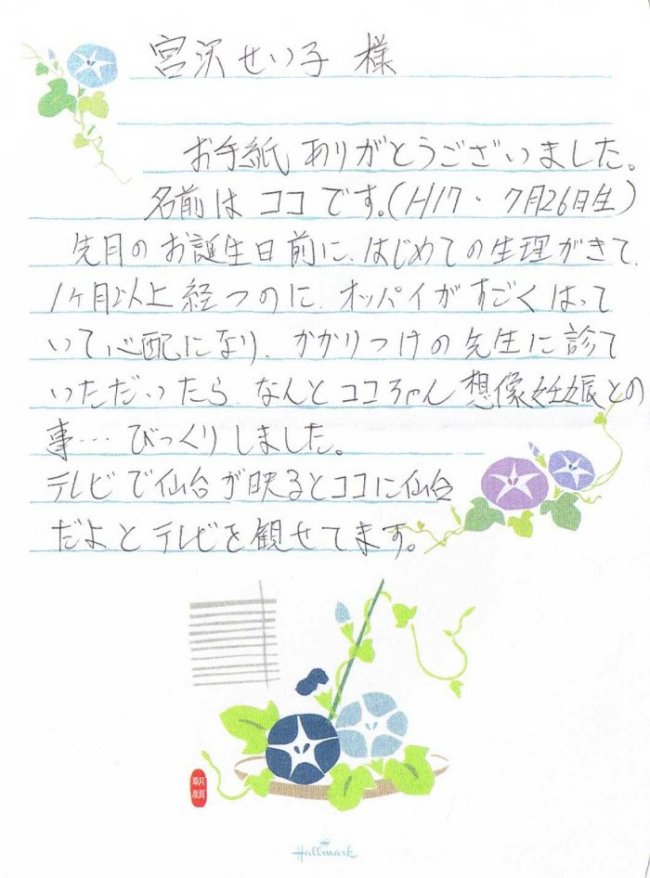 宮沢せい子 様
お手紙ありがとうございました。
名前は ココ です。(H17・7月26日生)
先月のお誕生日前に、はじめての生理がきて、
1ヶ月以上経つのに、オッパイがすごくはって
いて心配になり、かかりつけの先生に診て
いただいたら、なんとココちゃん想像妊娠との
事…びっくりしました。
テレビで仙台が映るとココに仙台
だよとテレビを観せてます。
朝顔
Hallmark